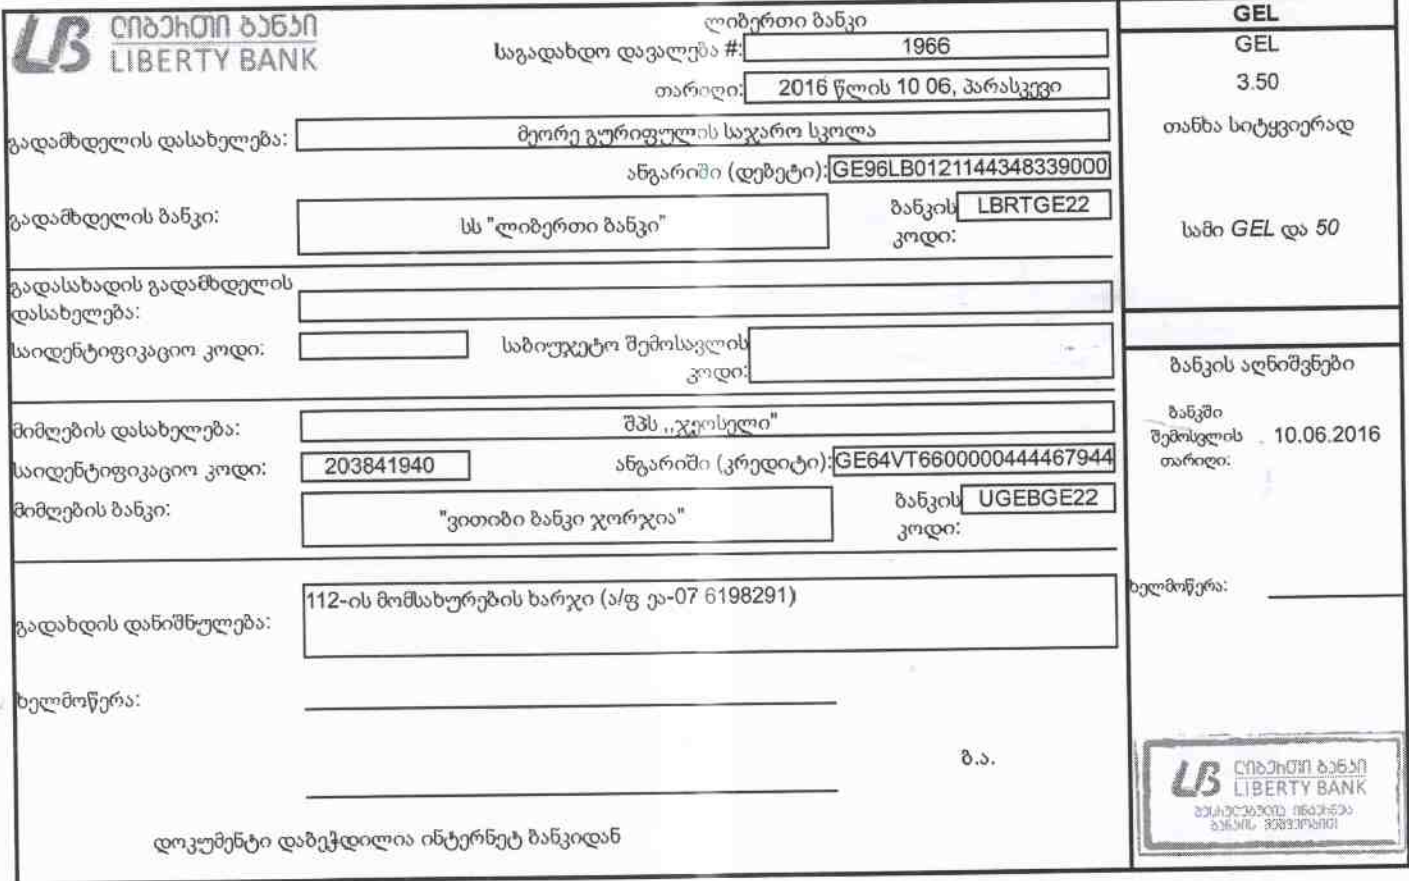 ლიბერთი ბანკი
LIBERTY BANK
ლიბერთი ბანკი
საგადახდო დავალება #: 1966
თარიღი: 2016 წლის 10 06, პარასკევი
გადამხდელის დასახელება: მეორე გურიფულის საჯარო სკოლა
ანგარიში (დებეტი): GE96LB0121144348339000
გადამხდელის ბანკი: სს "ლიბერთი ბანკი" ბანკის კოდი: LBRTGE22
გადასახადის გადამხდელის
დასახელება:
საიდენტიფიკაციო კოდი: საბიუჯეტო შემოსავლის
კოდი:
მიმღების დასახელება: შპს ,,ჯეოსელი"
საიდენტიფიკაციო კოდი: 203841940 ანგარიში (კრედიტი): GE64VT6600000444467944
მიმღების ბანკი: "ვითიბი ბანკი ჯორჯია" ბანკის კოდი: UGEBGE22
გადახდის დანიშნულება: 112-ის მომსახურების ხარჯი (ა/ფ ეა-07 6198291)
ხელმოწერა:
ბ.ა.
დოკუმენტი დაბეჭდილია ინტერნეტ ბანკიდან
GEL
GEL
3.50
თანხა სიტყვიერად
სამი GEL და 50
ბანკის აღნიშვნები
ბანკში
შემოსვლის 10.06.2016
თარიღი:
ხელმოწერა:
ლიბერთი ბანკი
LIBERTY BANK
შესრულებულია ინტერნეტ
ბანკის მეშვეობით